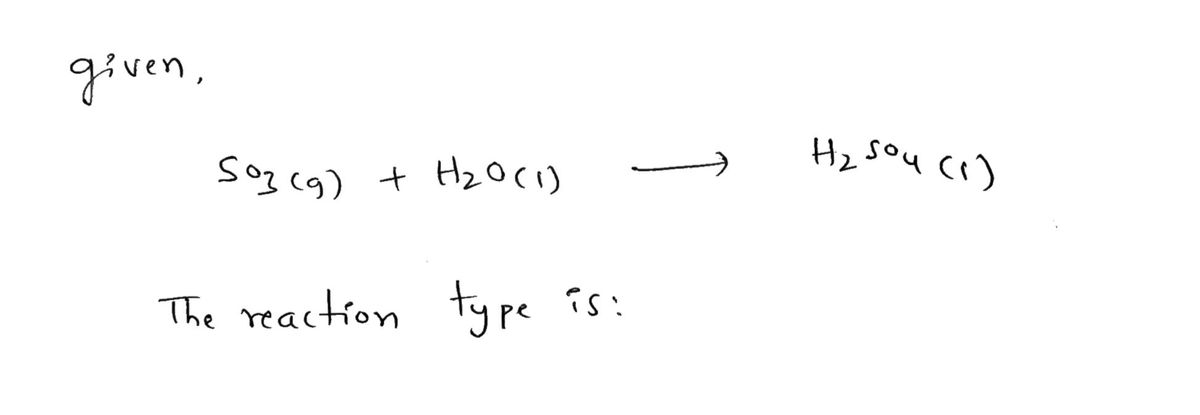 given,
SO3(g) + H2O(l) ⟶ H2SO4(l)
The reaction type is: